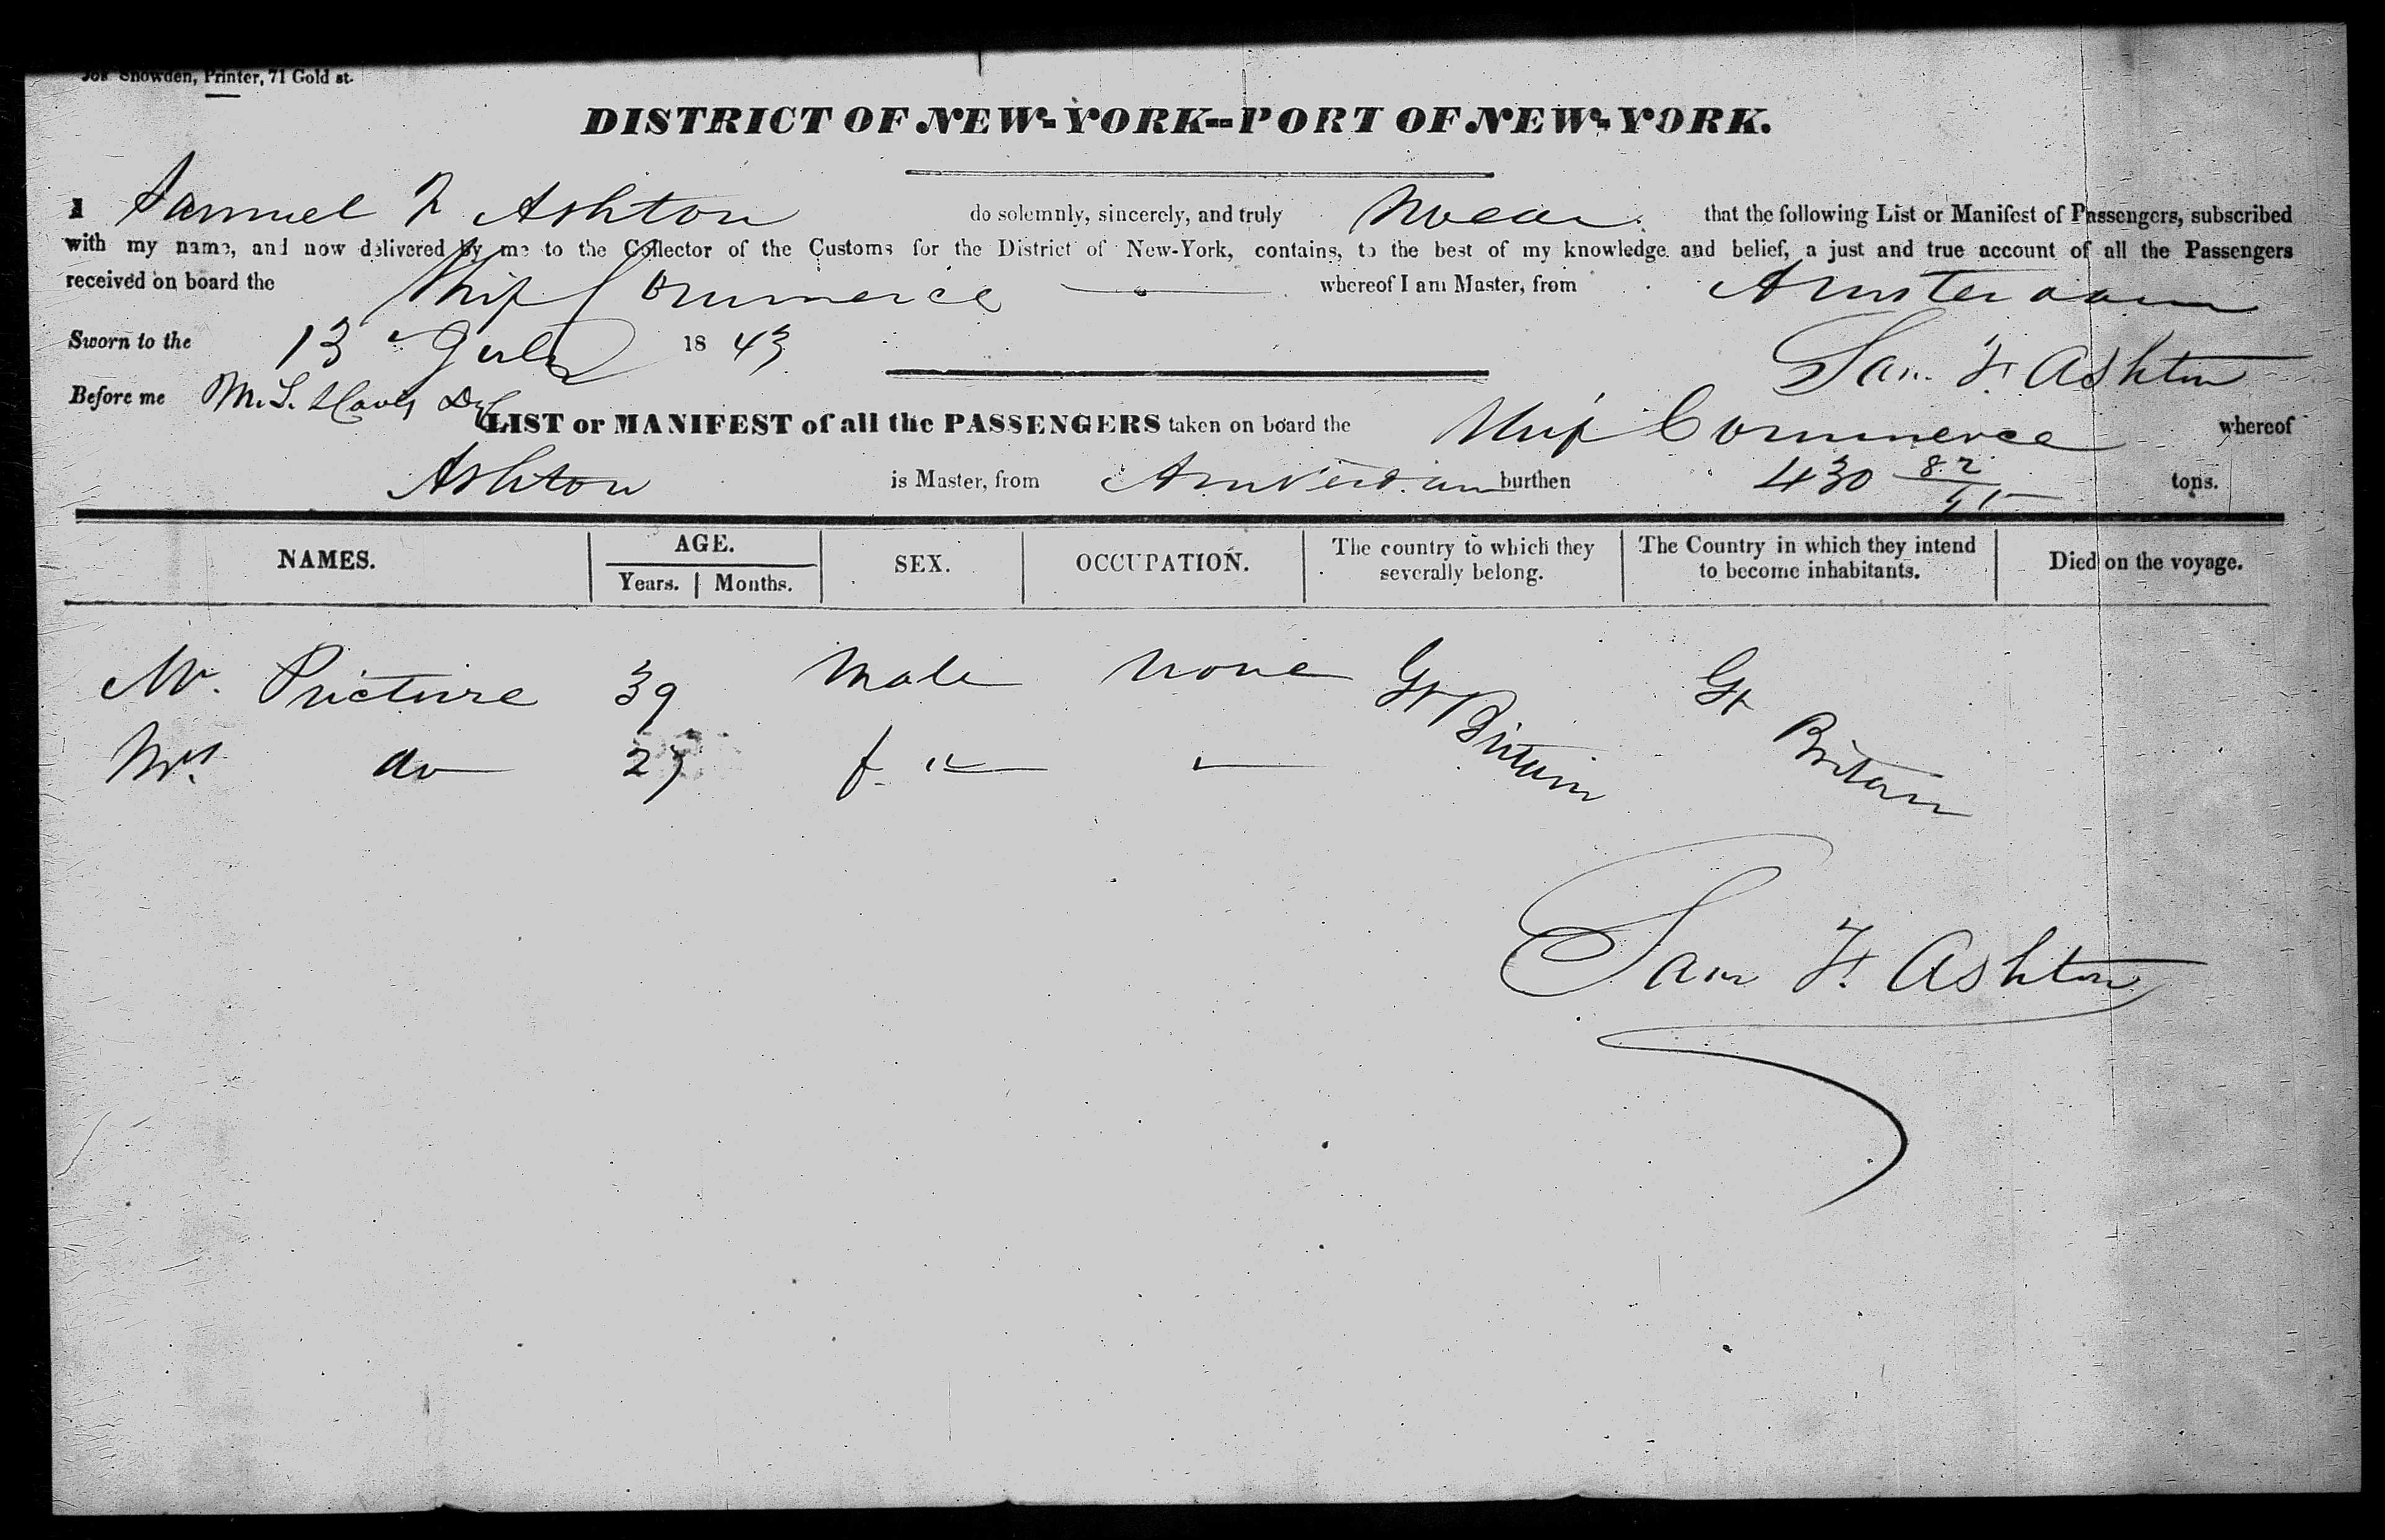 Jos Snowden, Printer, 71 Gold st.
DISTRICT OF NEW-YORK--PORT OF NEW-YORK.
I Samuel F Ashton do solemnly, sincerely, and truly swear that the following List or Manifest of Passengers, subscribed
with my name, and now delivered by me to the Collector of the Customs for the District of New-York, contains, to the best of my knowledge and belief, a just and true account of all the Passengers
received on board the Ship Commerce whereof I am Master, from Amsterdam
Sworn to the 13 July 1843 Sam F. Ashton
Before me M. L.
LIST or MANIFEST of all the PASSENGERS taken on board the Ship Commerce whereof
Ashton is Master, from Amsterdam burthen 430 82/95 tons.
NAMES. AGE. Years. Months. SEX. OCCUPATION. The country to which they severally belong. The Country in which they intend to become inhabitants. Died on the voyage.
Mr. 39 Male None Gt Britain Gt Britain
Mrs. do 27 f "
Sam F. Ashton